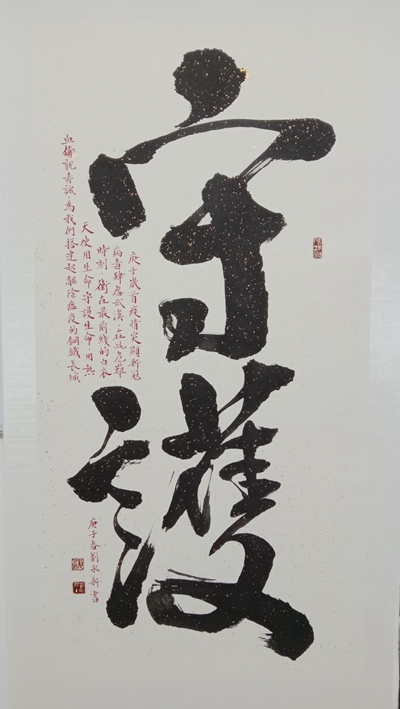 守護
庚子歲首疫情突顯新冠
病毒肆虐武漢在此危難
時刻衝在最前线的白衣
天使用生命守護生命用熱
血鑄就赤誠為我們搭建起驅除瘟疫的鋼鐵長城
庚子春劉永新書